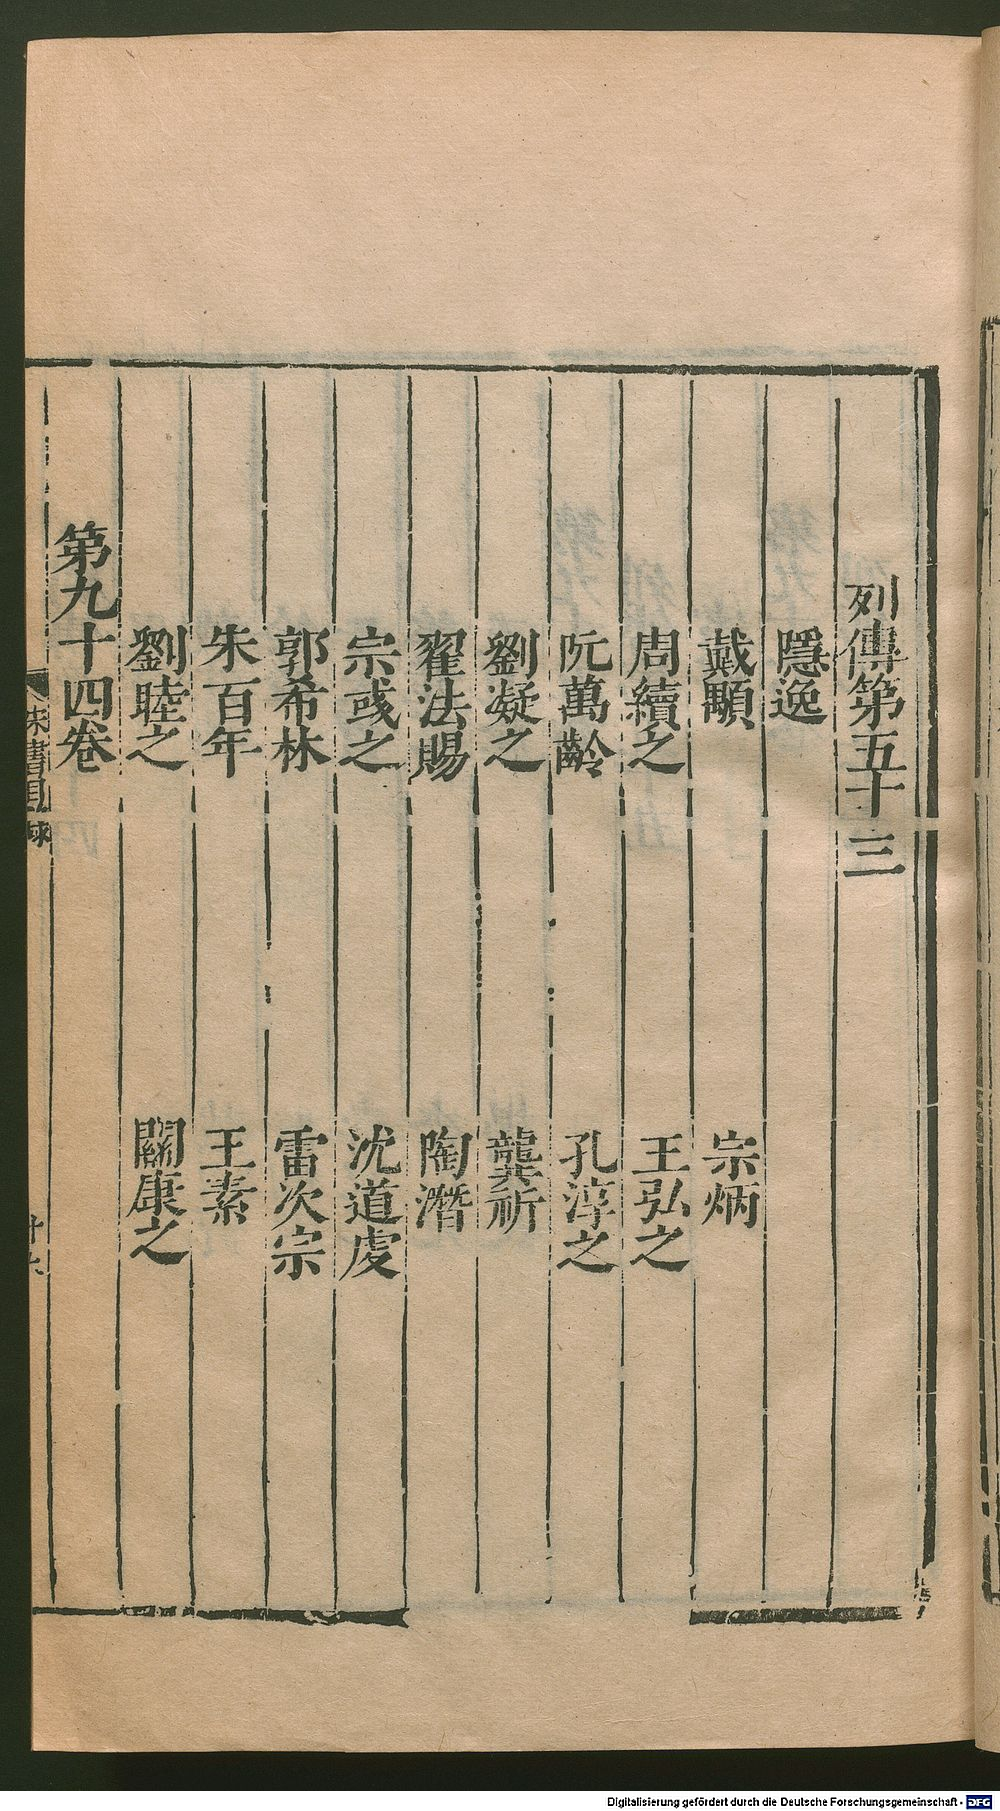 列傳第五十三
隱逸
戴顒 宗炳
周續之 王弘之
阮萬齡 孔淳之
劉凝之 龔祈
翟法賜 陶潛
宗彧之 沈道虔
郭希林 雷次宗
朱百年 王素
劉睦之 關康之
第九十四卷
宋書目錄
Digitalisierung gefördert durch die Deutsche Forschungsgemeinschaft - DFG